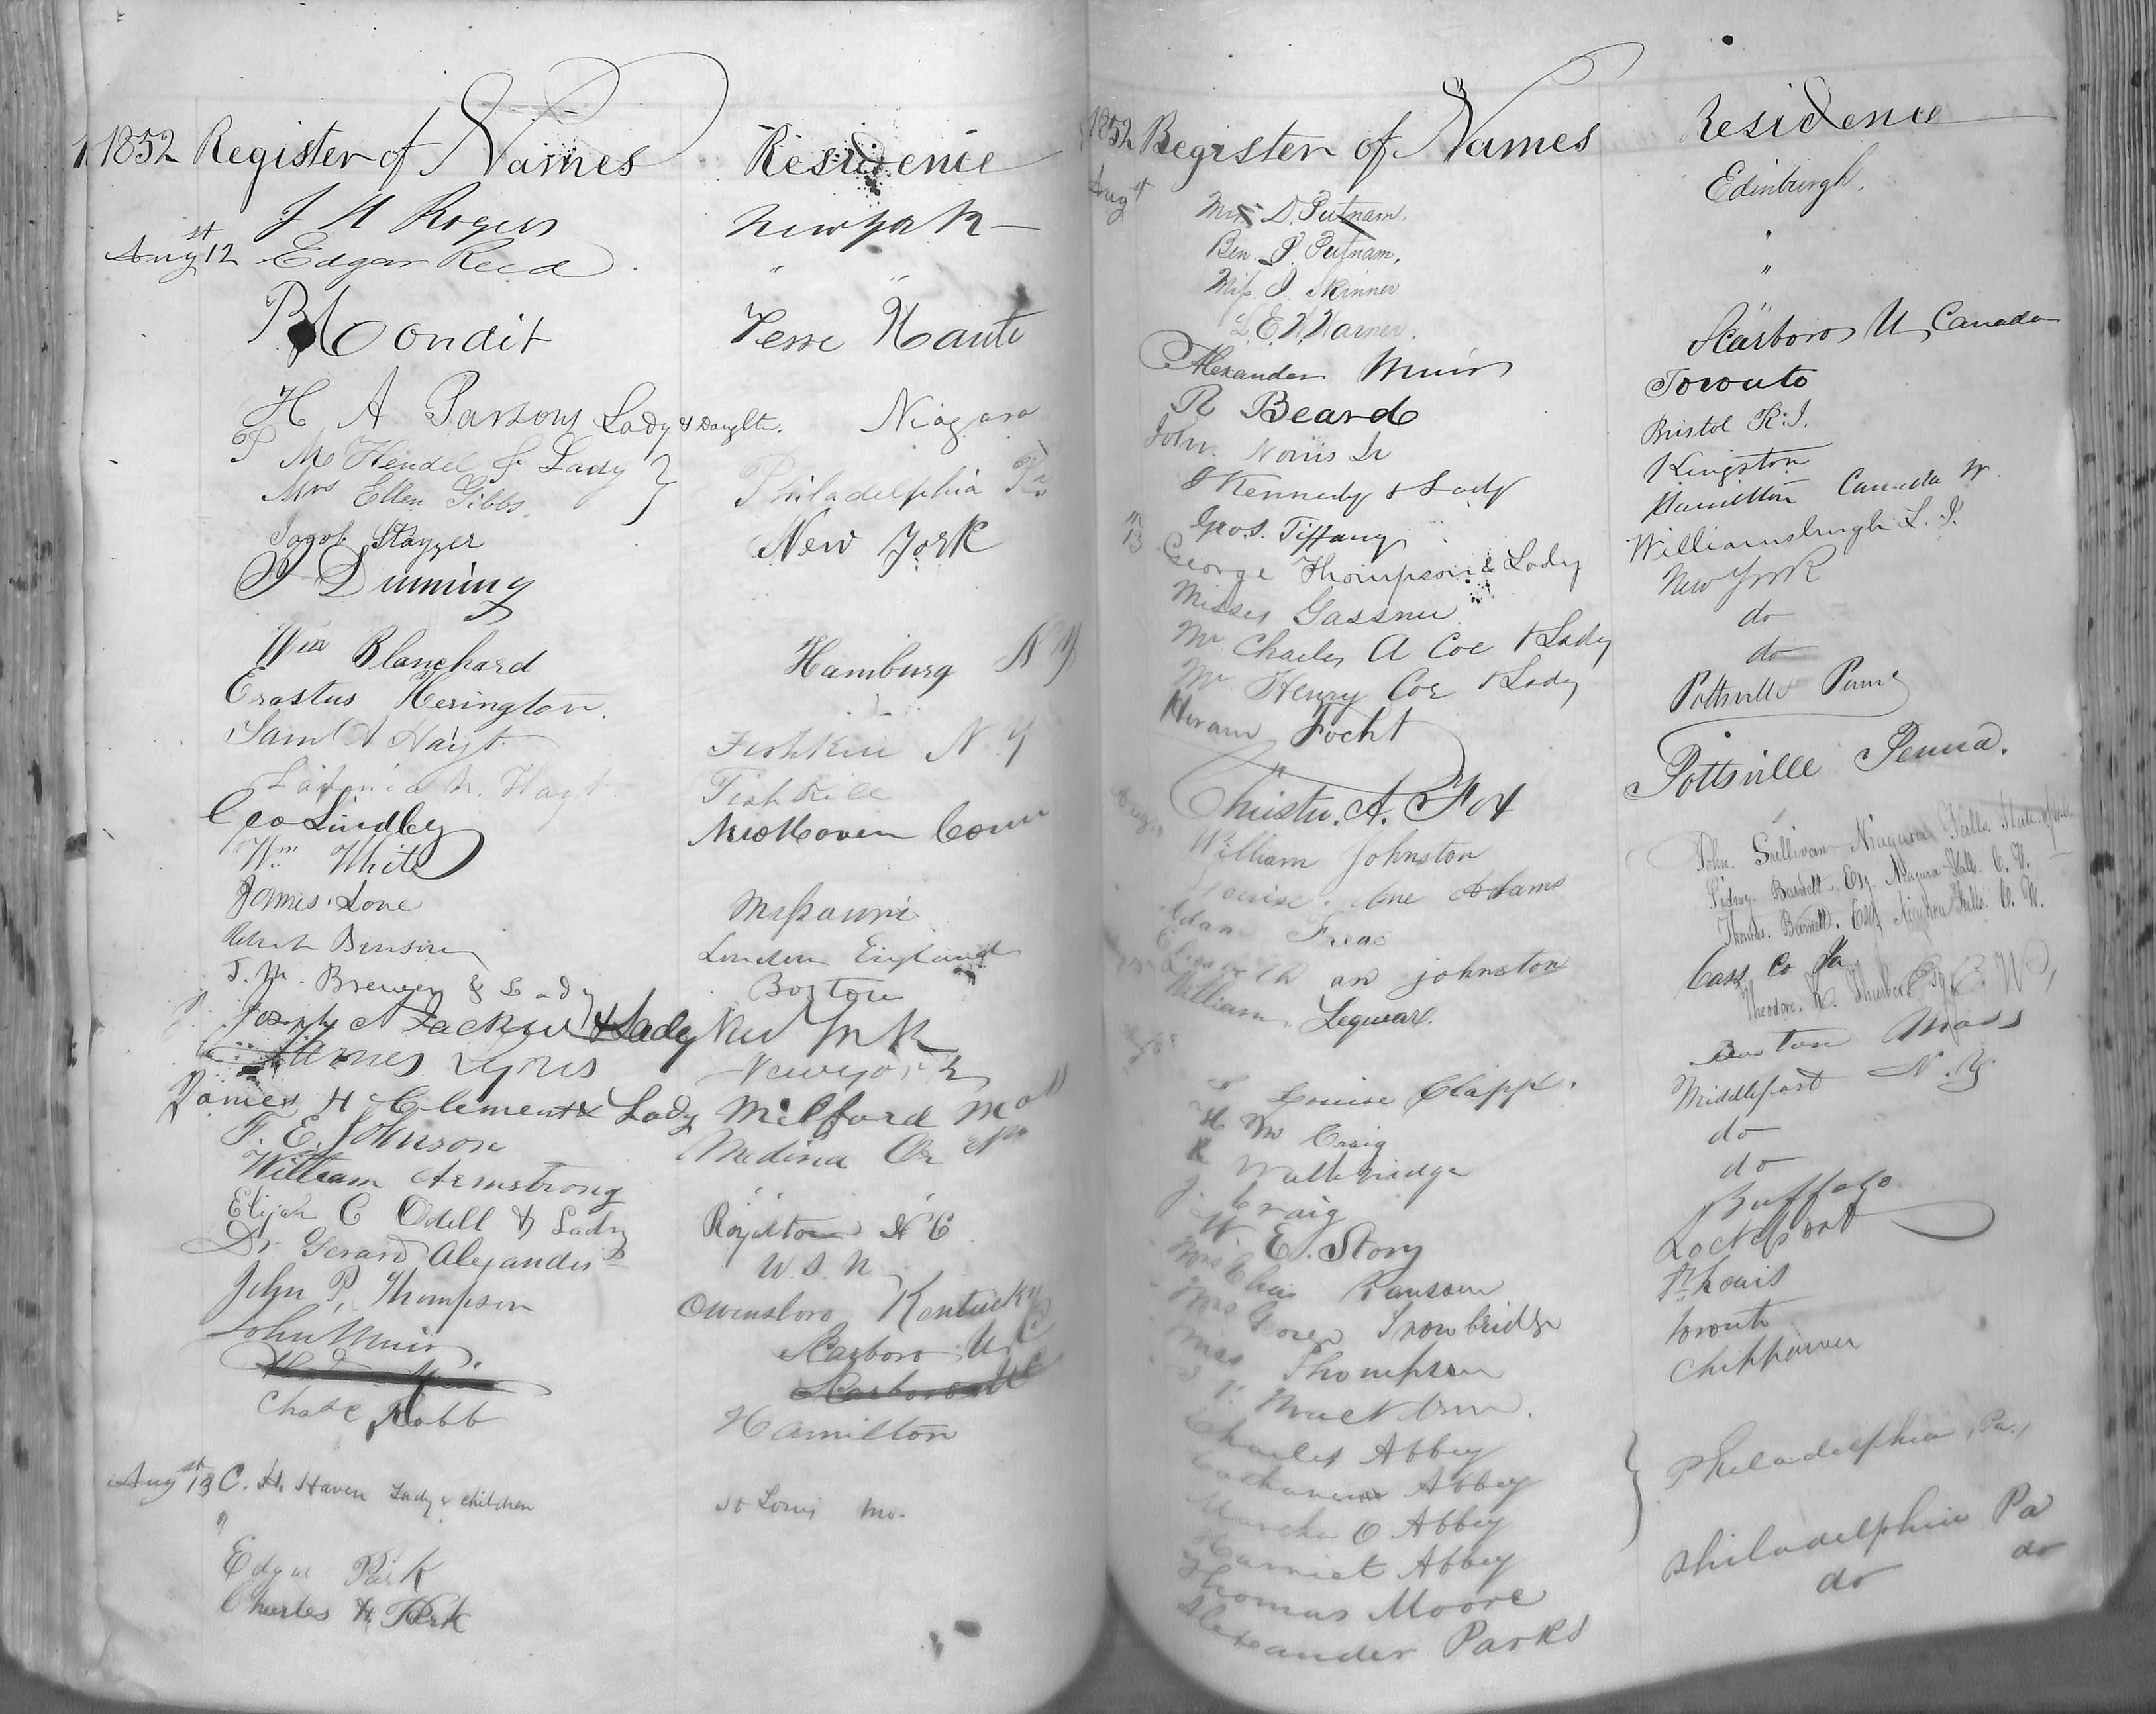 1852 Register of Names Residence
J H Rogers New York
Augst 12 Edgar Reed " "
B Condit Terre Haute
H A Parsons Lady & Daughter. Niagara
P M Hendel & Lady } Philadelphia Pa
Mrs Ellen Gibbs.
Jacob Stayzer New York
J Dunning
Wm Blanchard Hamburg N Y
Erastus Herington.
Saml A Hayt Fishkill N. Y
Hayt Fishkill
Geo Lindley New Haven Conn
Wm White
James Love Missouri
Benson London England
J. M. Brewer & Lady Boston
Joseph A Jackson & Lady New York
James Lyons New York
James H Clement & Lady Milford Mass
F. E. Johnson Medina Or
William Armstrong " "
Elijah C Odell & Lady Royalton N C
Dr Gerard Alexander U.S.N
John P. Thompson Owensboro Kentucky
John Muir Scarboro U C
Scarboro
Chase Robb Hamilton
Augst 13 C. H. Haven Lady & children St Louis Mo.
"
Edgar Park
Charles H. Park
1852 Register of Names Residence
Augt Edinburgh.
Mrs D. Putnam. "
Ben. P. Putnam. "
Miss J. Skinner "
L. E. H. Warner.
Alexander Muir Scarboro U Canada
R Beard Toronto
John Norris Jr Bristol R.I.
J Kennedy & Lady Kingston
" 13 Geo. S. Tiffany Hamilton Canada W.
George Thompson & Lady Williamsburgh L. I.
Misses Gassner New York
Mr Charles A Coe & Lady do
Mr Henry Coe & Lady do
Hiram Focht Pottsville Penna
Christn. A. Fox Pottsville Penna.
William Johnston John. Sullivan Niagara Falls. State of
Louise. Ane Adams Sidney. Barnett. Esq. Niagara Falls. C. W.
Adam Thomas. Barnett. Esq. Niagara Falls. C. W.
Elisabeth an johnston Cass Co
William Lequear. Theodore. Esq C. W
Boston Mass
Louise Clapp. Middleport N. Y.
H M Craig do
R Walbridge do
J. Craig Buffalo
W. E. Story Lockport
Mrs Ransom St Louis
Mrs Trowbridge Toronto
Miss Thompson Chippawa
Charles Abbey } Philadelphia, Pa.,
Catharine Abbey
Martha O Abbey
Harriet Abbey
Thomas Moore Philadelphia Pa
Alexander Parks do do